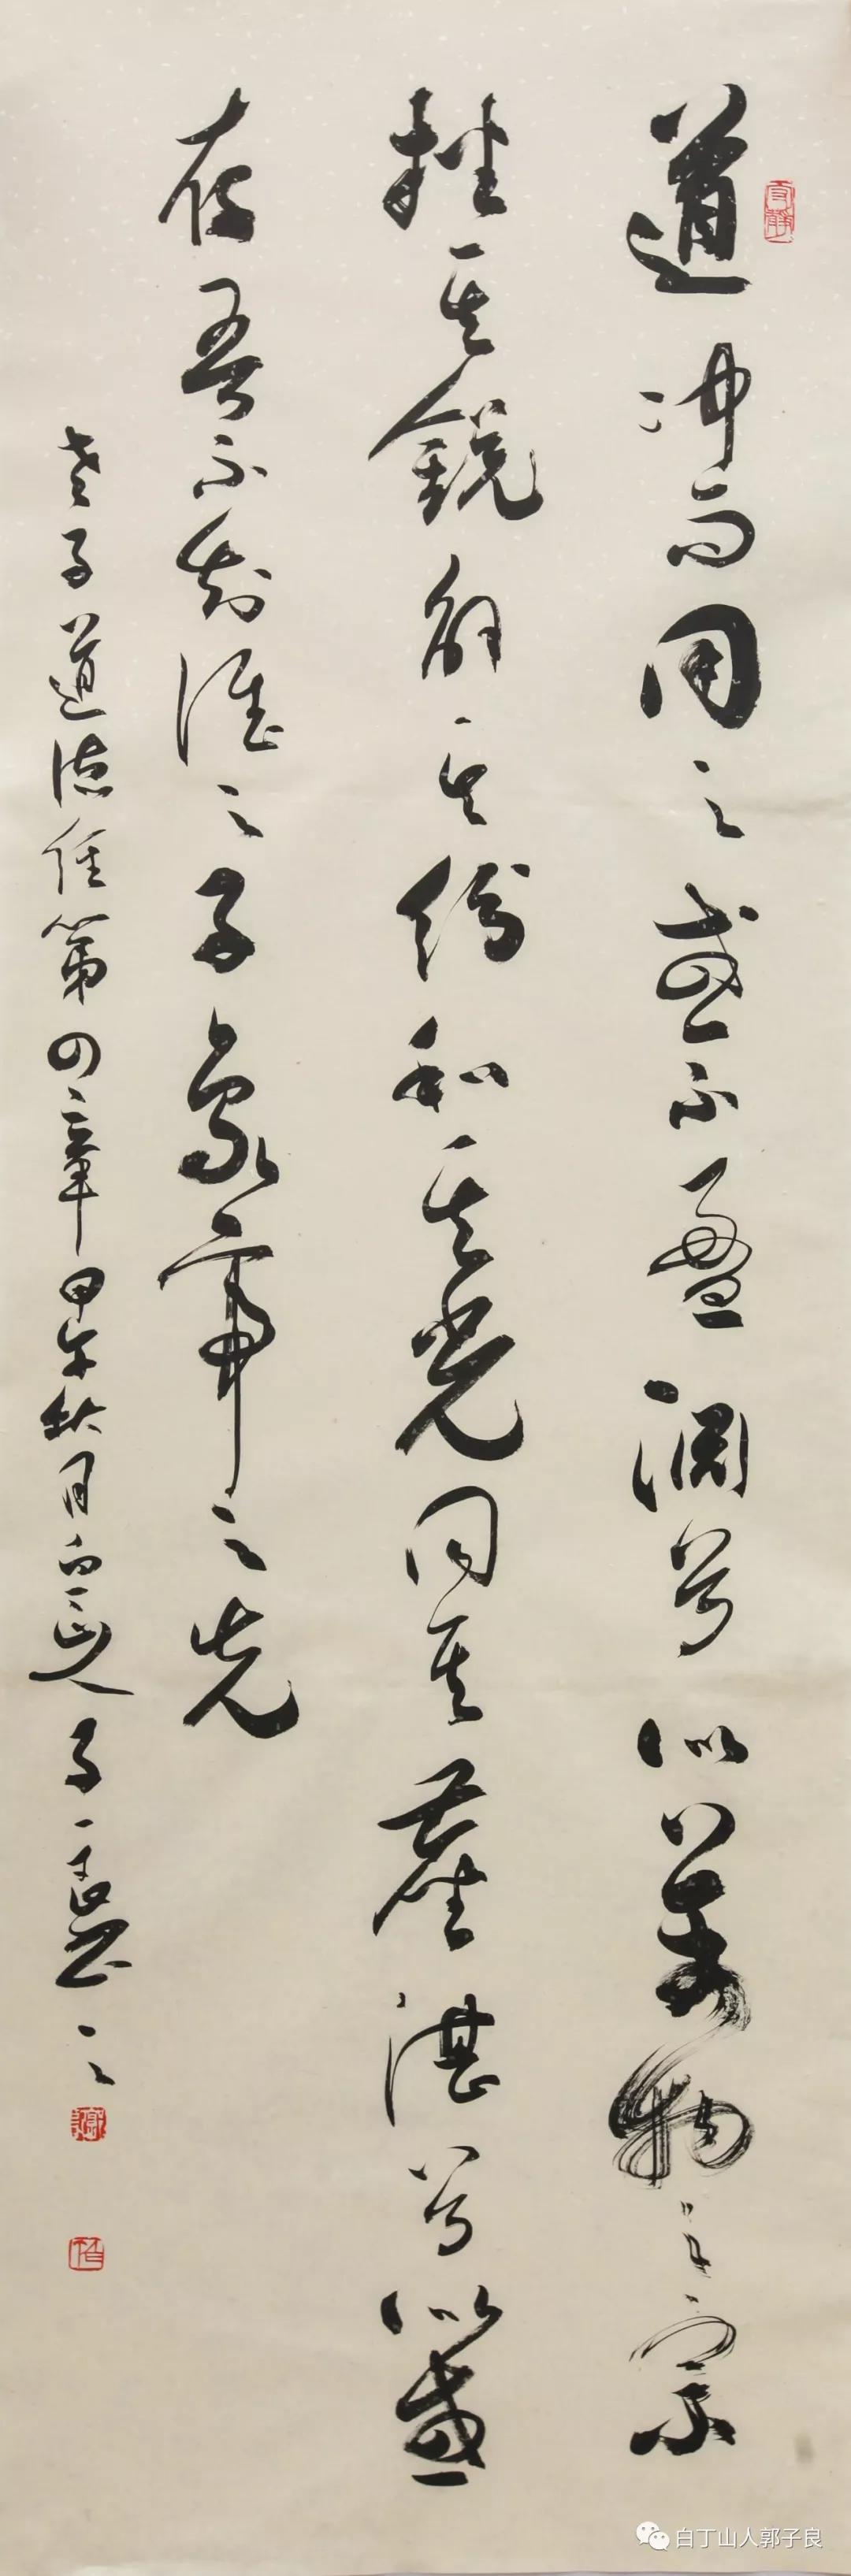 道冲而用之或不盈渊兮似万物之宗
挫其锐解其纷和其光同其尘湛兮似或
存吾不知谁之子象帝之先
老子道德经第四章甲午秋月白丁山人子良书之
白丁山人郭子良